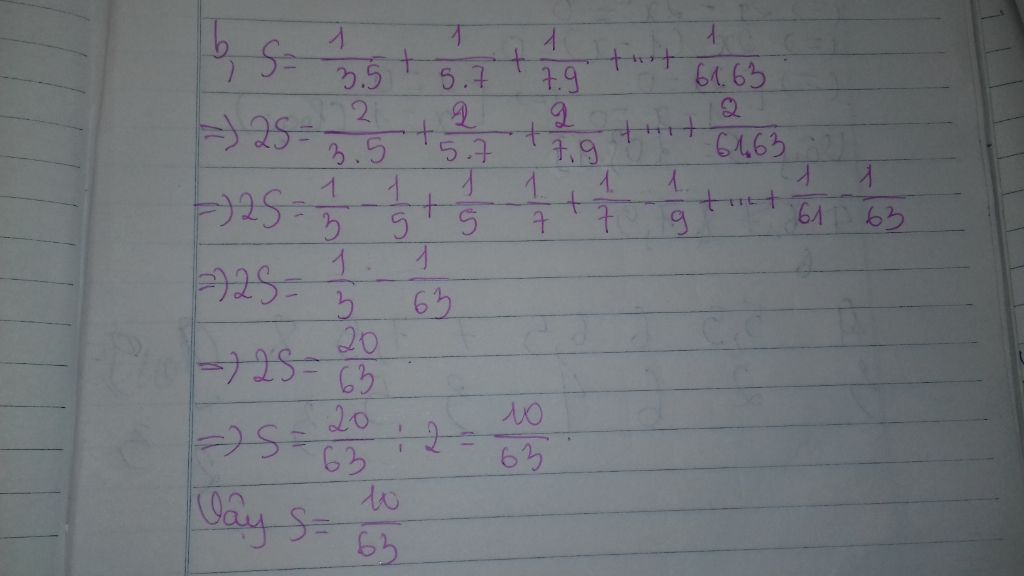 b, S = 1/3.5 + 1/5.7 + 1/7.9 + ... + 1/61.63
=> 2S = 2/3.5 + 2/5.7 + 2/7.9 + ... + 2/61.63
=> 2S = 1/3 - 1/5 + 1/5 - 1/7 + 1/7 - 1/9 + ... + 1/61 - 1/63
=> 2S = 1/3 - 1/63
=> 2S = 20/63
=> S = 20/63 : 2 = 10/63.
Vậy S = 10/63